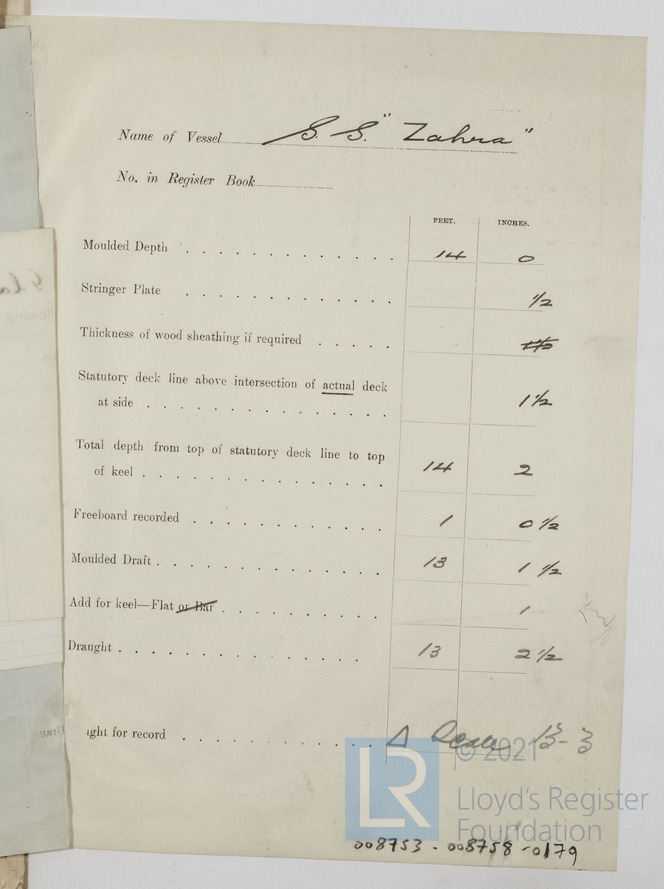 Name of Vessel S. S. "Zahra"
No. in Register Book
FEET. INCHES.
Moulded Depth 14 0
Stringer Plate 1/2
Thickness of wood sheathing if required
Statutory deck line above intersection of actual deck
at side 1 1/2
Total depth from top of statutory deck line to top
of keel 14 2
Freeboard recorded 1 0 1/2
Moulded Draft 13 1 1/2
Add for keel—Flat or Bar 1
Draught 13 2 1/2
ight for record 13-3
© 2021
LR
Lloyd's Register
Foundation
008753-008758-0179